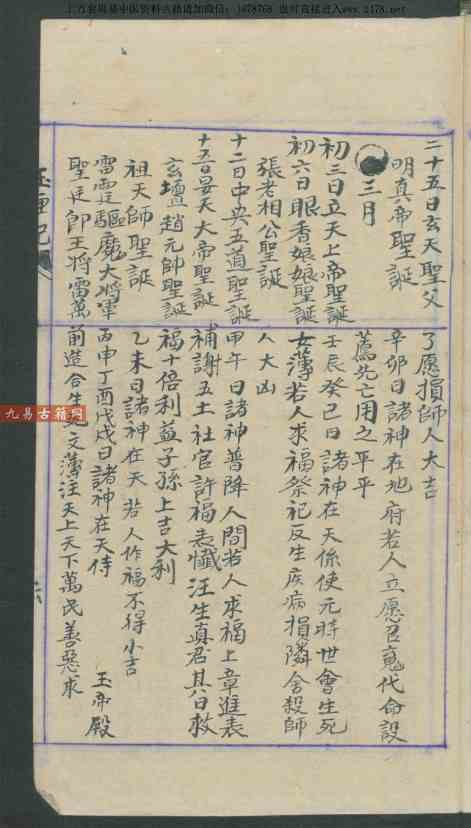 二十五日玄天聖父
明真帝聖誕
三月
初三日玄天上帝聖誕
初六日眼香娘娘聖誕
張老相公聖誕
十二日中央五道聖誕
十五日昊天大帝聖誕
玄壇趙元帥聖誕
祖天師聖誕
雷霆驅魔大將軍
聖廷郎王將雷萬
了愿損師人大吉
辛卯日諸神在地府若人立愿召魂代命設
薦先亡用之平平
壬辰癸巳日諸神在天係使元時世會生死
女薄若人求福祭祀反生疾病損隣舍殺師
人大凶
甲午日諸神普降人間若人求福上章進表
補謝五土社官許福表懺注生真君其日救
福十倍利益子孫上吉大利
乙未日諸神在天若人作福不得小吉
丙申丁酉戊戌日諸神在天侍 玉帝殿
前造合生死文薄注天上天下萬民善惡求
玉匣記
六
九易古籍网